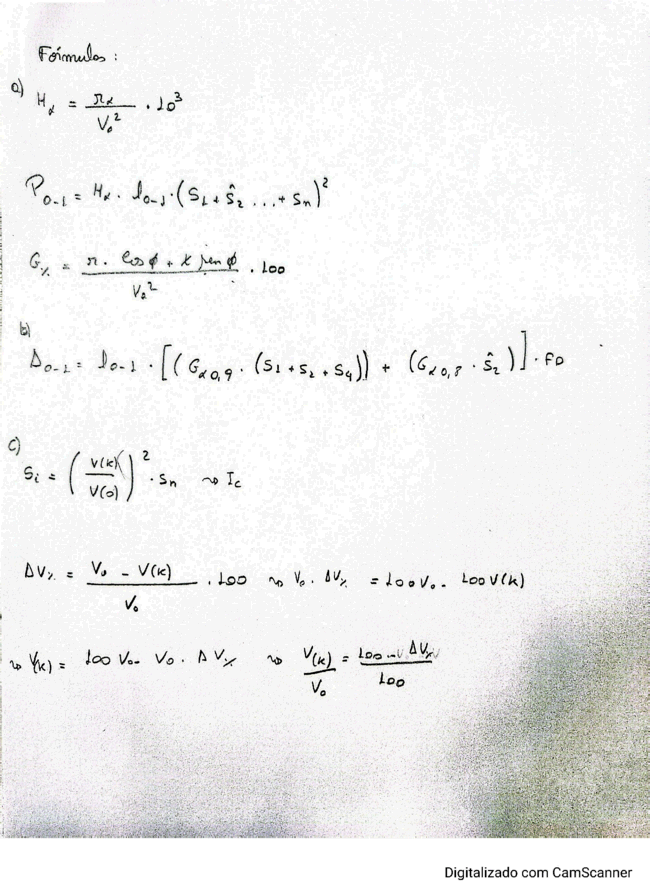 Fórmulas :
a) H_α = r_α / V_0² . 10³
P_0-1 = H_α . l_0-1 . (S_1 + Ŝ_2 ... + S_n)²
G_% = r. cos ϕ + x sen ϕ / V_0² . 100
b)
Δ_0-1 = l_0-1 . [(G_α0,9 . (S_1 + S_2 + S_4)) + (G_α0,8 . Ŝ_2)] . FD
c)
S_i = (V(k) / V(0))² . S_n ↝ I_c
ΔV_% = V_0 - V(k) / V_0 . 100 ↝ V_0 . ΔV_% = 100V_0 - 100V(k)
↝ V(k) = 100 V_0 - V_0 . ΔV_% ↝ V(k) / V_0 = 100 - ΔV_% / 100
Digitalizado com CamScanner